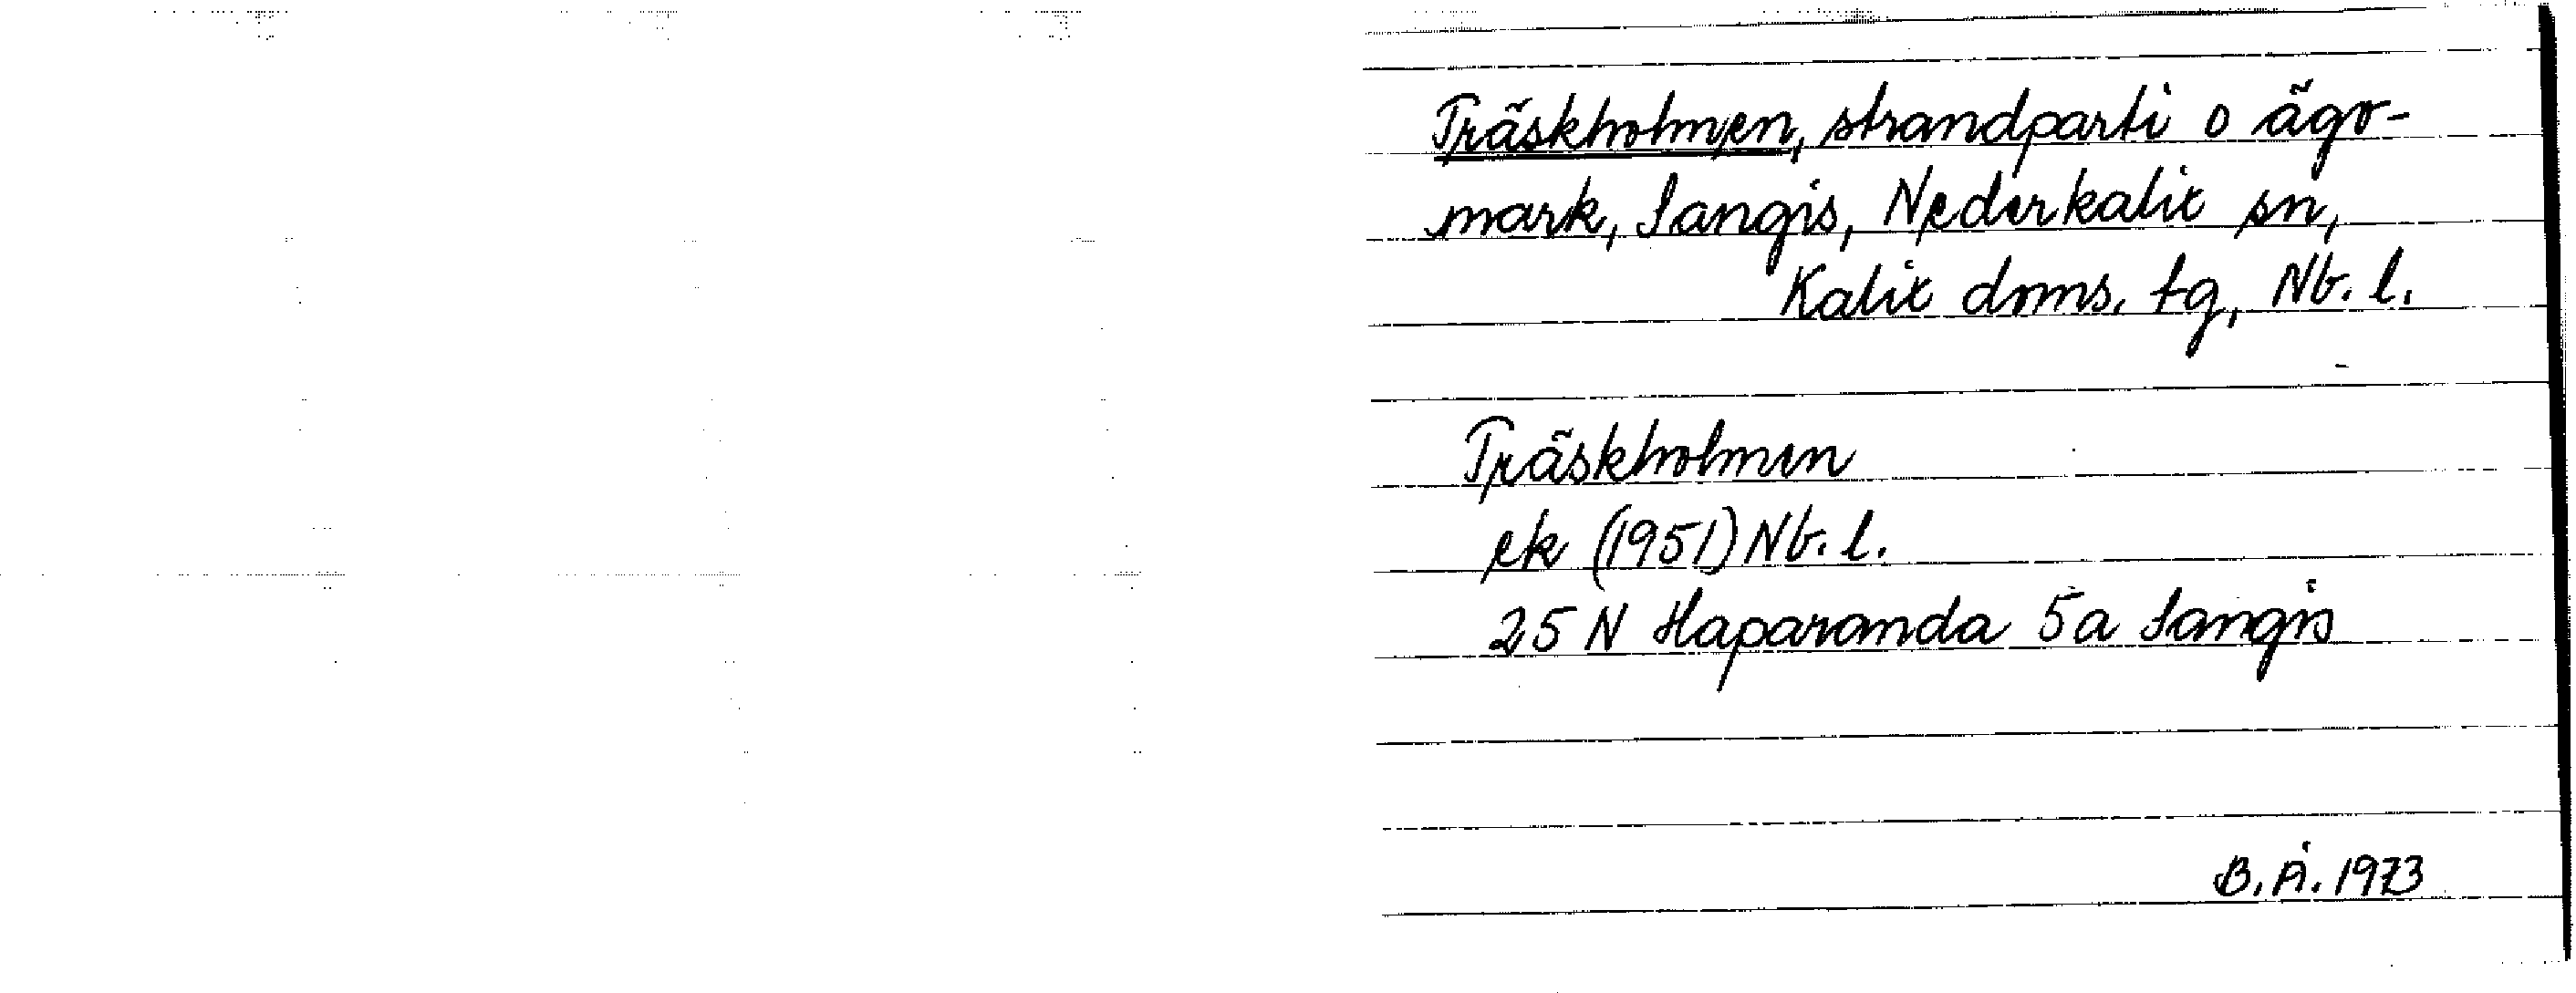 Träskholmen, strandparti o ägo-
mark, Sangis, Nederkalix sn,
Kalix doms. tg, Nb. l.
Träskholmen
ek (1951) Nb. l.
25 N Haparanda 5a Sangis
B. Å. 1973